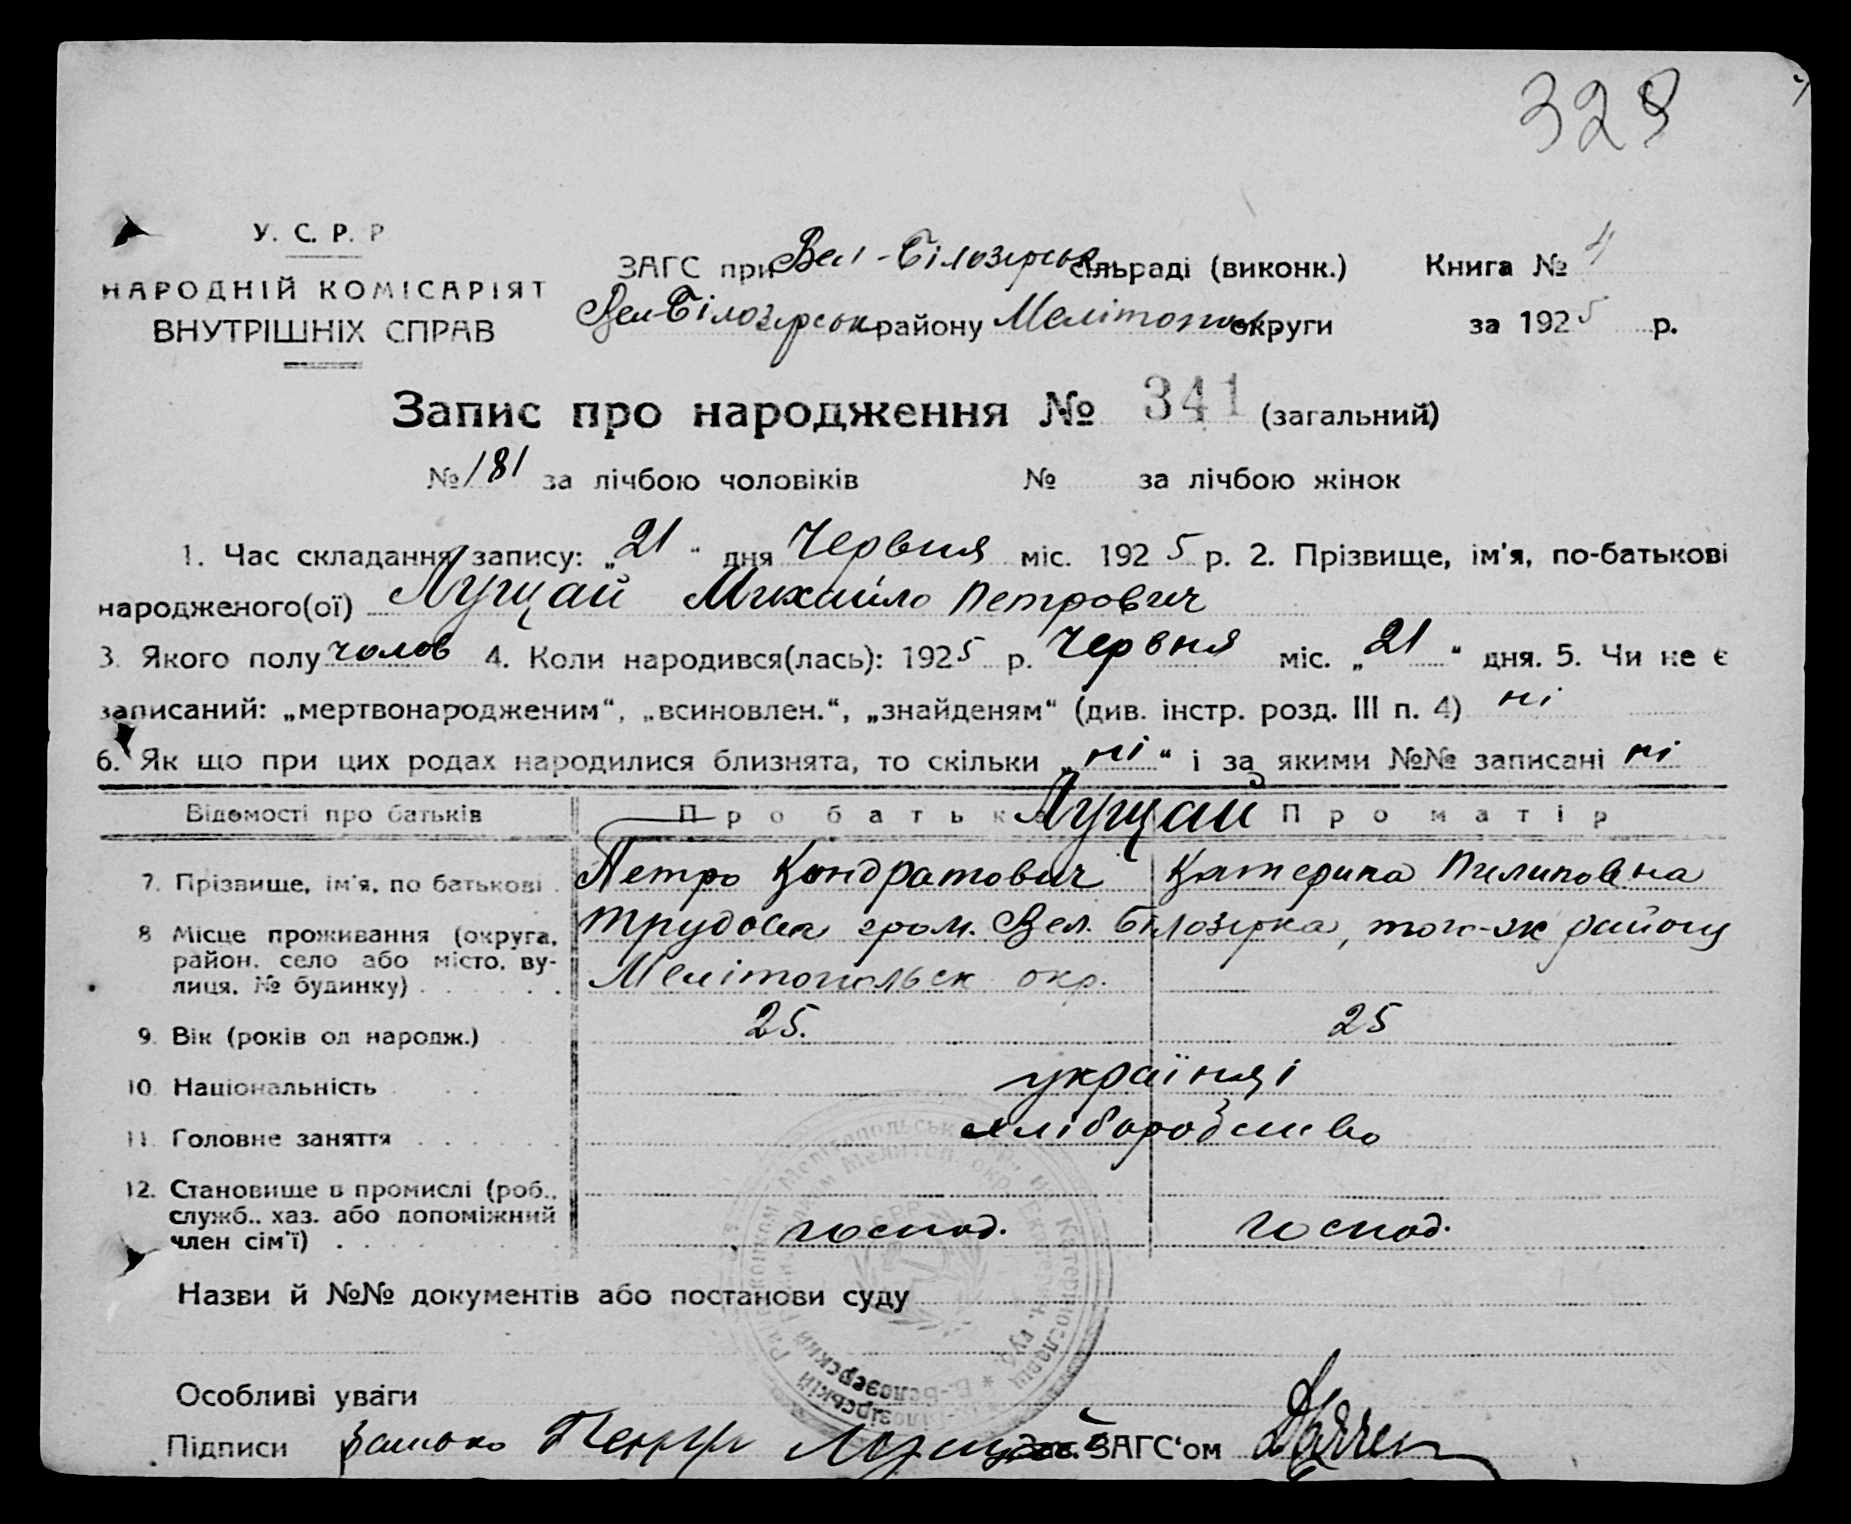 328
У. С. Р. Р
НАРОДНІЙ КОМІСАРІЯТ
ВНУТРІШНІХ СПРАВ
ЗАГС при Вел-Білозірськ сільраді (виконк.) Книга № 4
Вел-Білозірськ району Мелітопол. округи за 1925 р.
Запис про народження № 341 (загальний)
№ 181 за лічбою чоловіків № за лічбою жінок
1. Час складання запису: „21“ дня Червня міс. 1925 р. 2. Прізвище, ім'я, по-батькові
народженого(ої) Лущай Михайло Петрович
3. Якого полу чолов 4. Коли народився(лась): 1925 р. Червня міс. „21“ дня. 5. Чи не є
записаний: „мертвонародженим“, „всиновлен.“, „знайденям“ (див. інстр. розд. III п. 4) ні
6. Як що при цих родах народилися близнята, то скільки „ні“ і за якими №№ записані ні
Відомості про батьків Про батька Лущай Про матір
7. Прізвище, ім'я, по батькові Петро Кондратович Катерина Пилиповна
8 Місце проживання (округа, район, село або місто, вулиця, № будинку) Трудова гром. Вел. Білозірка, того-ж району
Мелітопольськ окр.
9. Вік (років од народж.) 25. 25
10. Національність українці
11. Головне заняття хліборобство
12. Становище в промислі (роб.,
служб., хаз. або допоміжний
член сім'ї) господ. господ.
Назви й №№ документів або постанови суду
Особливі уваги
Підписи Зав. ЗАГС'ом